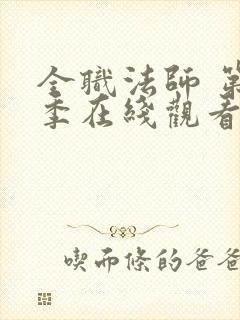 全職法師 第
季在綫觀看
喫而條的爸爸